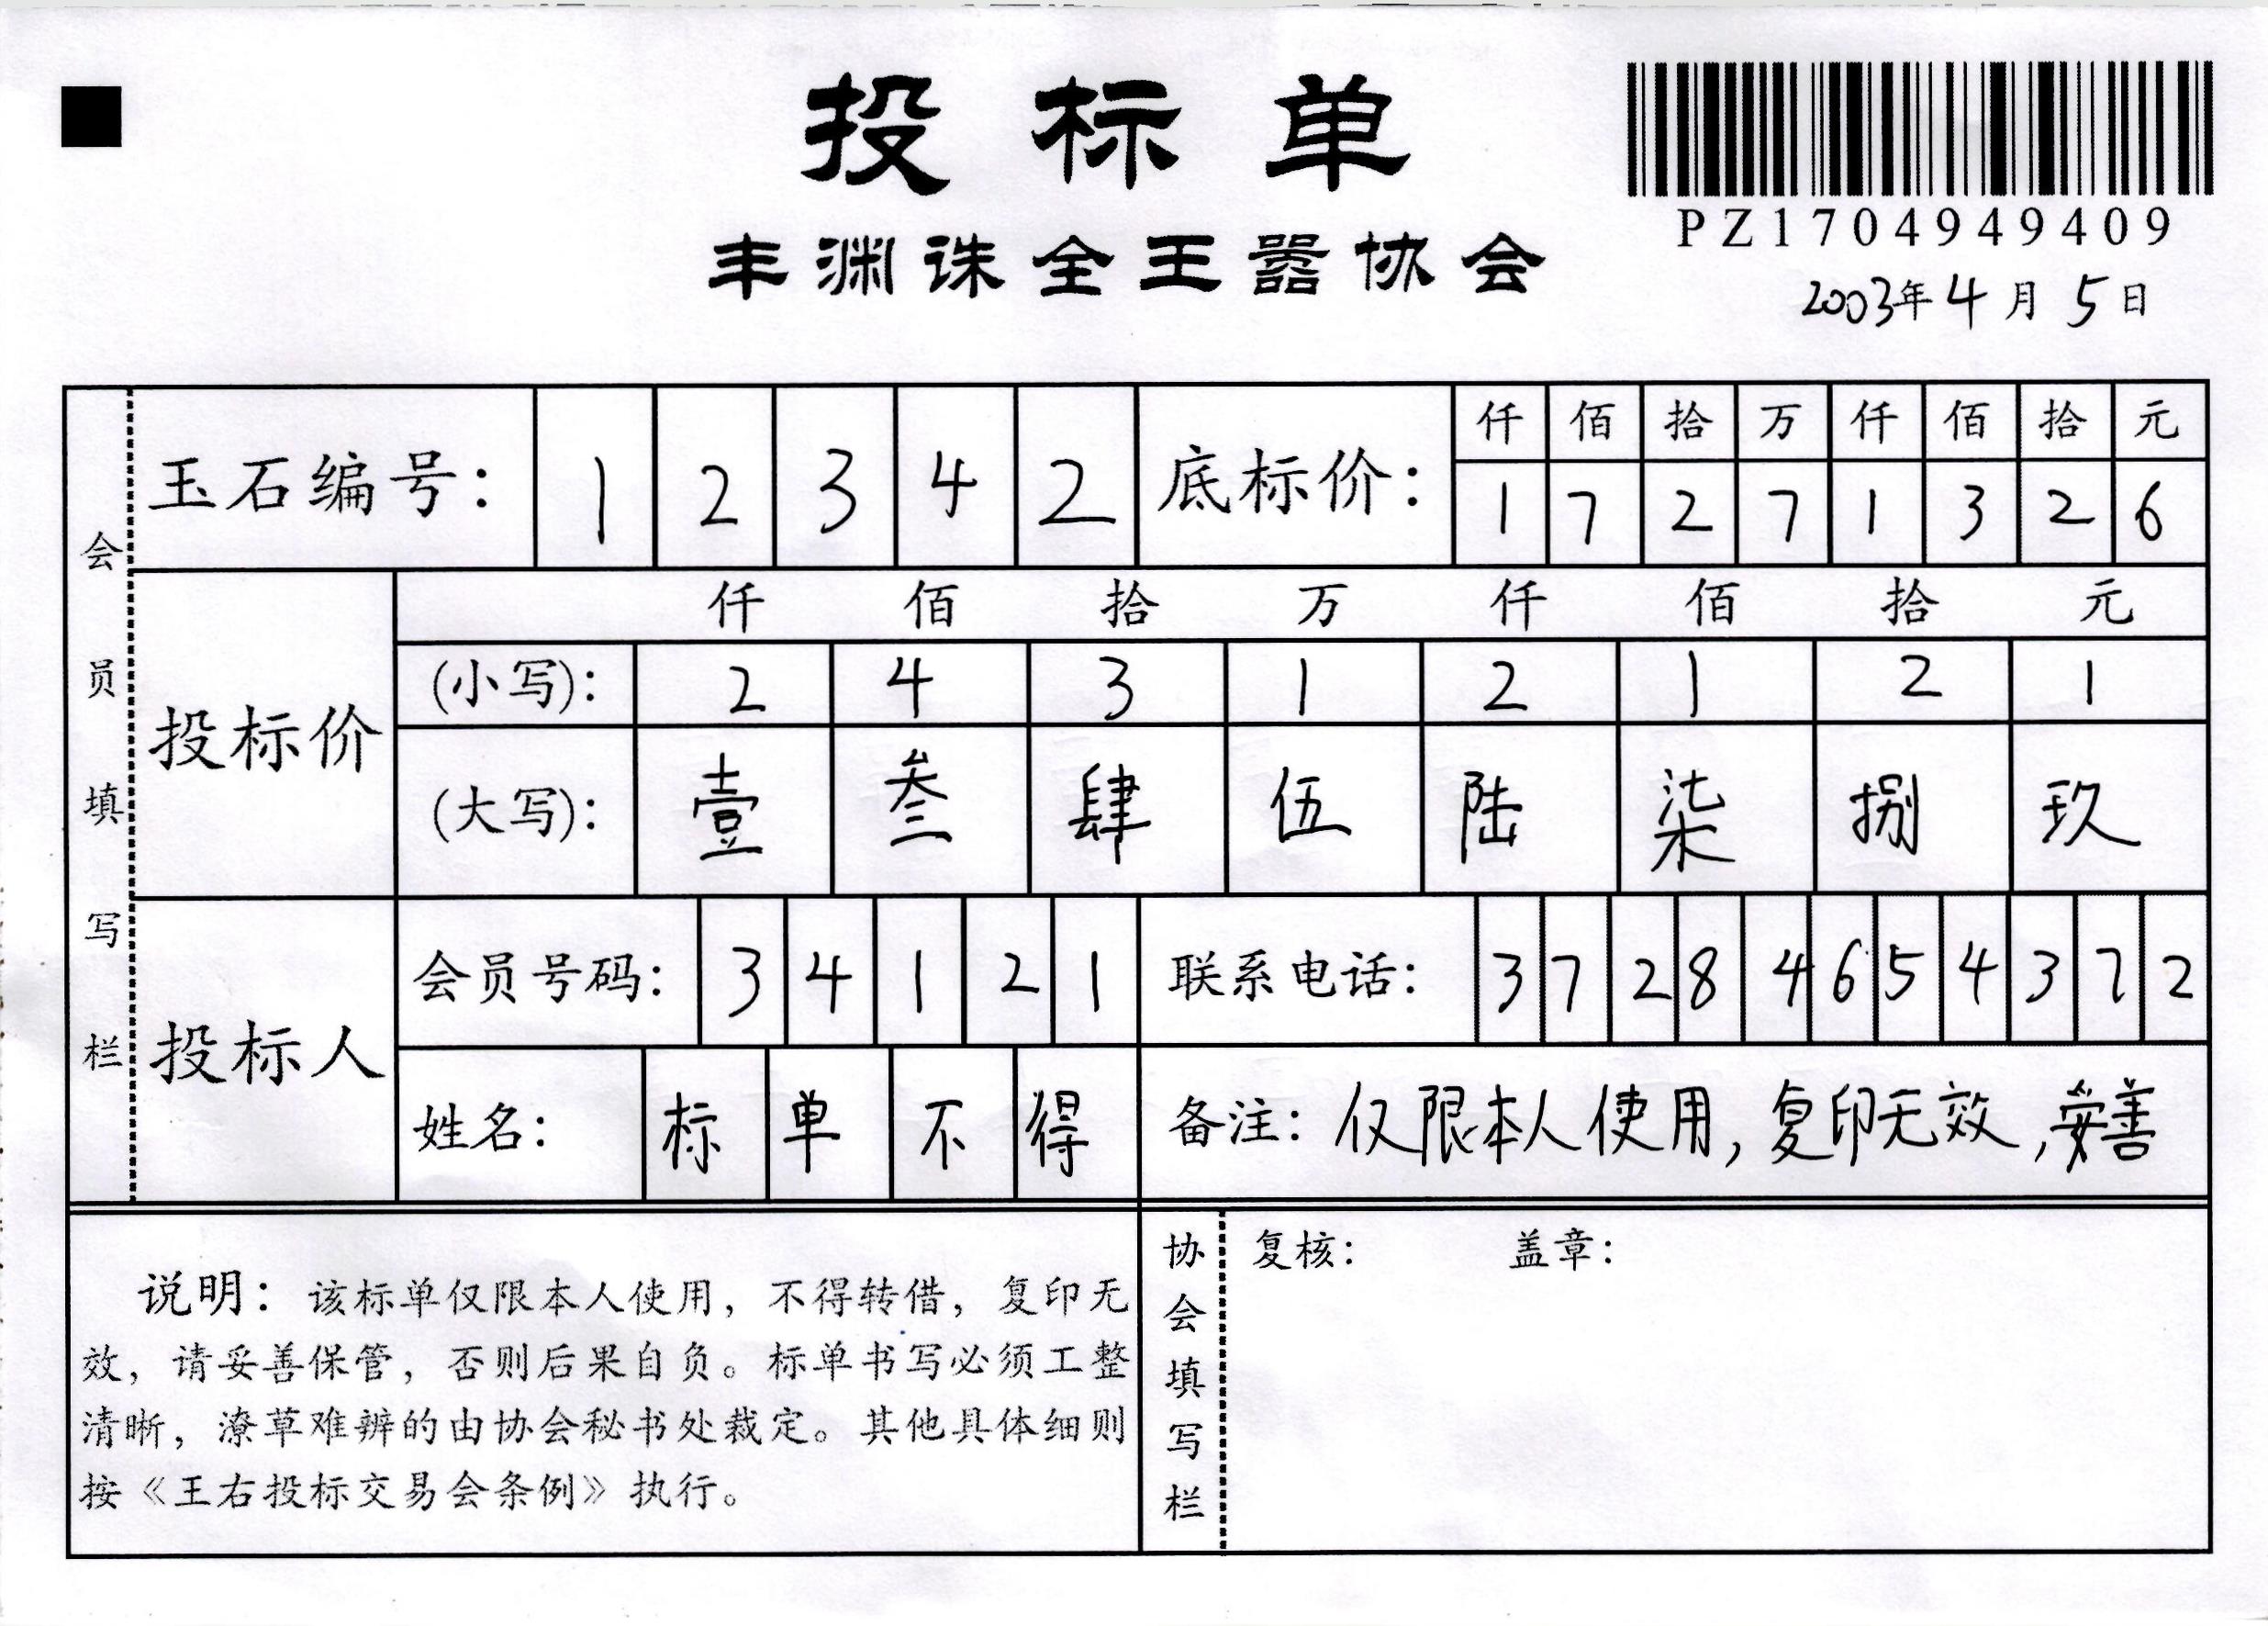 投标单
丰渊诛全王嚣协会
PZ1704949409
2003年4月5日
会员填写栏
玉石编号： 1 2 3 4 2
底标价： 仟 佰 拾 万 仟 佰 拾 元
1 7 2 7 1 3 2 6
投标价
仟 佰 拾 万 仟 佰 拾 元
(小写)： 2 4 3 1 2 1 2 1
(大写)： 壹 叁 肆 伍 陆 柒 捌 玖
投标人
会员号码： 3 4 1 2 1
联系电话： 3 7 2 8 4 6 5 4 3 7 2
姓名： 标 单 不 得
备注：仅限本人使用，复印无效，妥善
说明：该标单仅限本人使用，不得转借，复印无
效，请妥善保管，否则后果自负。标单书写必须工整
清晰，潦草难辨的由协会秘书处裁定。其他具体细则
按《王右投标交易会条例》执行。
协会填写栏
复核： 盖章：